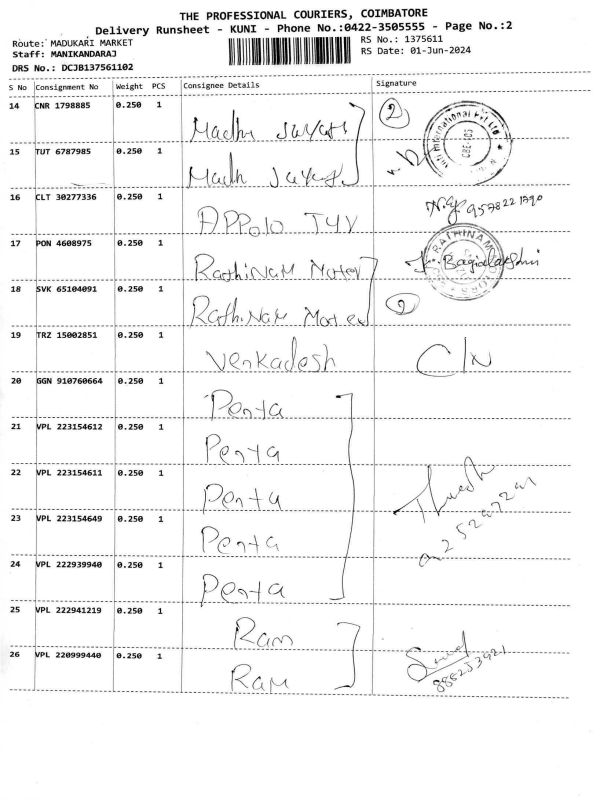 THE PROFESSIONAL COURIERS, COIMBATORE
Delivery Runsheet - KUNI - Phone No.:0422-3505555 - Page No.:2
Route: MADUKARI MARKET RS No.: 1375611
Staff: MANIKANDARAJ RS Date: 01-Jun-2024
DRS No.: DCJB137561102
S No Consignment No Weight PCS Consignee Details Signature
14 CNR 1798885 0.250 1 Madhu 2
15 TUT 6787985 0.250 1
16 CLT 30277336 0.250 1 Appolo
17 PON 4608975 0.250 1 RathiNam
18 SVK 65104091 0.250 1 RathiNam 2
19 TRZ 15002851 0.250 1 Venkadesh C/N
20 GGN 910760664 0.250 1 Penta
21 VPL 223154612 0.250 1 Penta
22 VPL 223154611 0.250 1 Penta
23 VPL 223154649 0.250 1 Penta
24 VPL 222939940 0.250 1 Penta
25 VPL 222941219 0.250 1 Ram
26 VPL 220999440 0.250 1 Ram